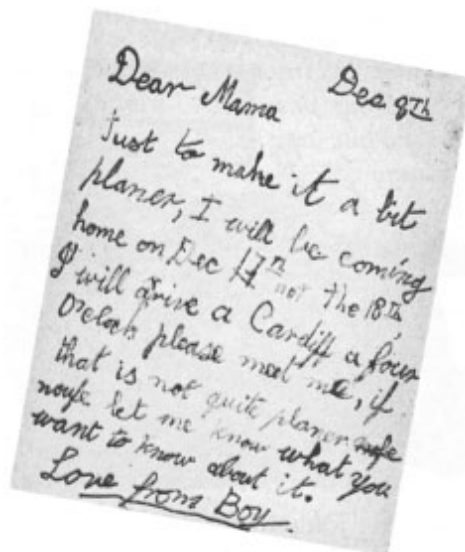 Dec 9th
Dear Mama
Just to make it a bit
planer, I will be coming
home on Dec 17th not the 18th,
I will arive a Cardiff a four
O'clock please meet me, if
that is not quite planer
let me know what you
want to know about it.
Love from Boy.